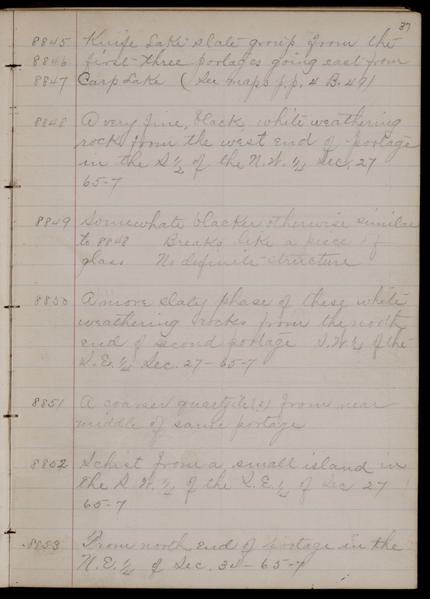 37
8845 Knife Lake slate group from the
8846 first three portages going east from
8847 Carp Lake (See maps p.p. 4 B. 49)
8848 A very fine, black white weathering
rock from the west end of portage
in the S½ of the N.W.¼ Sec. 27
65-7
8849 Somewhate blacker otherwise similar
to 8848 Breaks like a piece of
glass No definite structure
8850 A more slaty phase of these white
weathering rocks from the north
end of second portage S.W¼ of the
S.E.¼ Sec. 27-65-7
8851 A coarser quartzite(?) from near
middle of same portage
8852 Schist from a small island in
the S.W.¼ of the S.E.¼ of Sec 27
65-7
8853 From north end of portage in the
N.E.¼ of Sec. 34-65-7